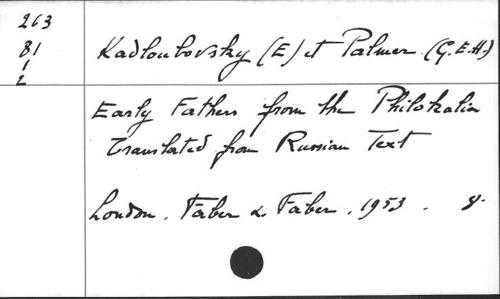 263
B1
1
2
Kadloubovsky (E) et Palmer (G.E.H.)
Early Fathers from the Philokalia
Translated from Russian Text
London. Faber & Faber. 1953. 8°